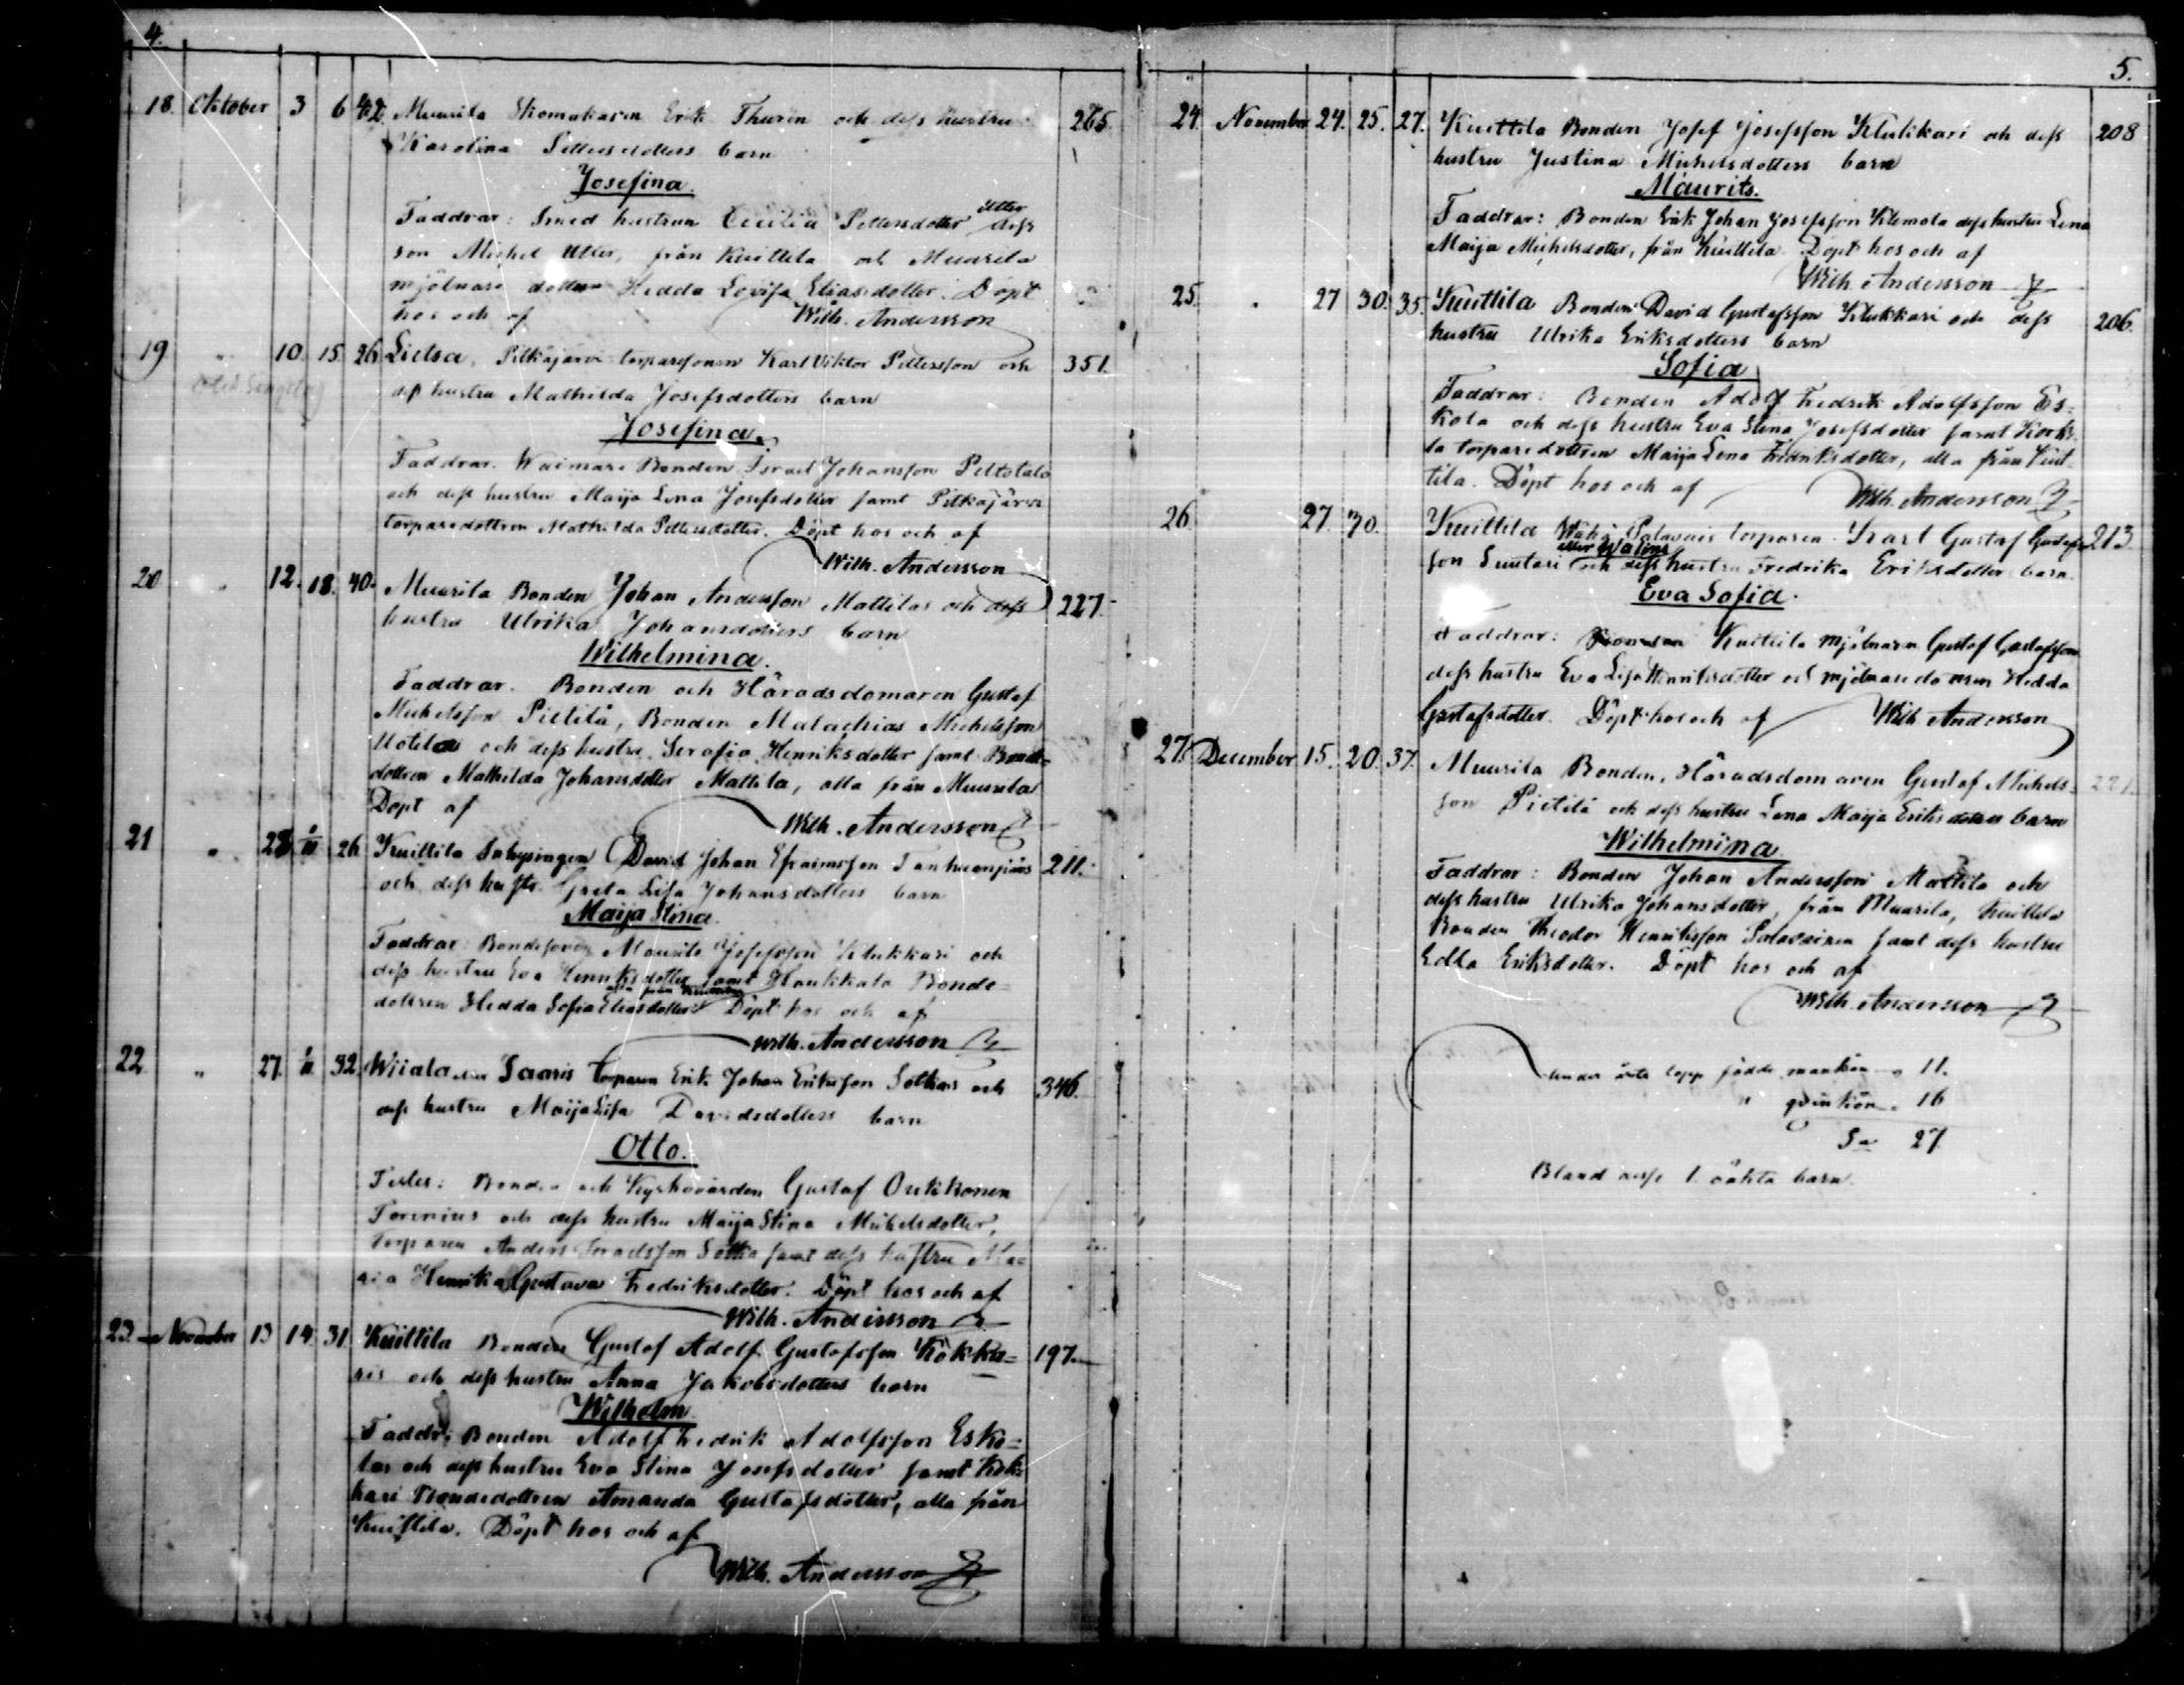 4.
18. Oktober 3 6 42 Muurila Skomakaren Erik Thurén och dess hustru 265.
Karolina Pettersdotters barn
Josefina.
Faddrar: Smed hustrun Cecilia Pettersdotter Utter dess
son Michel Utter, från Kuittila och Muurila
mjölnare dottern Hedda Lovisa Eliasdotter. Döpt
hos och af Wilh. Andersson
19 " 10 15 26 Lietsa, Pitkäjärvi torparesonen Karl Viktor Pettersson och 351.
dess hustru Mathilda Josefsdotters barn
Josefina.
Faddrar. Waimari Bonden Israel Johansson Peltotalo
och dess hustru Maija Lena Josefsdotter samt Pitkajärvi
torparedottren Mathilda Pettersdotter. Döpt hos och af
Wilh. Andersson
20 " 12. 18. 40. Muurila Bonden Johan Andersson Mattilas och dess 227.
hustru Ulrika Johansdotters barn
Wilhelmina.
Faddrar. Bonden och Häradsdomaren Gustaf
Michelsson Pietilä, Bonden Malachias Michelsson
Uotila och dess hustru Serafia Henriksdotter samt Bonde-
dottren Mathilda Johansdotter Mattila, alla från Muurila
Döpt af
Wilh. Andersson
21 " 28 26 Kuittila Inhysingen David Johan Efraimsson 211.
och dess hustr. Greta Lisa Johansdotters barn
Maija Stina.
Faddrar: Bondesonen Maurits Josefsson Klukkari och
dess hustru Eva Henriksdotter samt Haukkala Bonde-
alla från Kuittila
dottren Hedda Sofia Eliasdotter Döpt hos och af
Wilh. Andersson
22 " 27. 32. Wiiala Saaris torparen Erik Johan Eriksson Sotkas och 346.
dess hustru Maija Lisa Davidsdotters barn
Otto.
Testes: Bonden och Kyrkovärden Gustaf Onkkonen
och dess hustru Maija Stina Michelsdotter,
torparen Anders Israelsson Sotka samt dess hustru Ma-
ria Henrika Gustava Fredriksdotter. Döpt hos och af
Wilh. Andersson
23. November 13 14 31. Kuittila Bonden Gustaf Adolf Gustafsson Kökka- 197.
ris och dess hustru Anna Jakobsdotters barn
Wilhelm
Faddr: Bonden Adolf Fredrik Adolfsson Esko-
las och dess hustru Eva Stina Josefsdotter samt Kök-
kari Bondedottren Amanda Gustafsdotter, alla från
Kuittila. Döpt hos och af
Wilh. Andersson
5.
24. November 24. 25. 27. Kuittila Bonden Josef Josefsson Klukkari och dess 208
hustru Justina Michelsdotters barn
Maurits.
Faddrar: Bonden Erik Johan Josefsson Klemola dess hustru Lena
Maija Michelsdotter, från Kuittila. Döpt hos och af
Wilh. Andersson
25. " 27 30. 35. Kuittila Bonden David Gustafsson Klukkari och dess 206.
hustru Ulrika Eriksdotters barn
Sofia
Faddrar: Bonden Adolf Fredrik Adolfsson Es-
kola och dess hustru Eva Stina Josefsdotter samt
torparedottren Maija Lena Fredriksdotter, alla från Kuit-
tila. Döpt hos och af Wilh. Andersson
26. 27. 30. Kuittila Wähä Palavais torparen Karl Gustaf Gustafs- 213
eller Walins
son Suutari och dess hustru Fredrika Eriksdotters barn.
Eva Sofia.
Faddrar: Kuittila Mjölnaren Gustaf Gustafsson
dess hustru Eva Lisa Henriksdotter och mjölnaredottren Hedda
Gustafsdotter. Döpt hos och af Wilh. Andersson
27. December 15. 20. 37. Muurila Bonden, Häradsdomaren Gustaf Michels- 221.
son Pietilä och dess hustru Lena Maija Eriksdotters barn
Wilhelmina
Faddrar: Bonden Johan Andersson Mattila och
dess hustru Ulrika Johansdotter, från Muurila, Kuittila
Bonden Theodor Henriksson Palavainen samt dess hustru
Edla Eriksdotter. Döpt hos och af
Wilh. Andersson
Under årets lopp födde mankön " 11.
" qvinkön " 16
Sa 27
Bland dessa 1. oäkta barn.